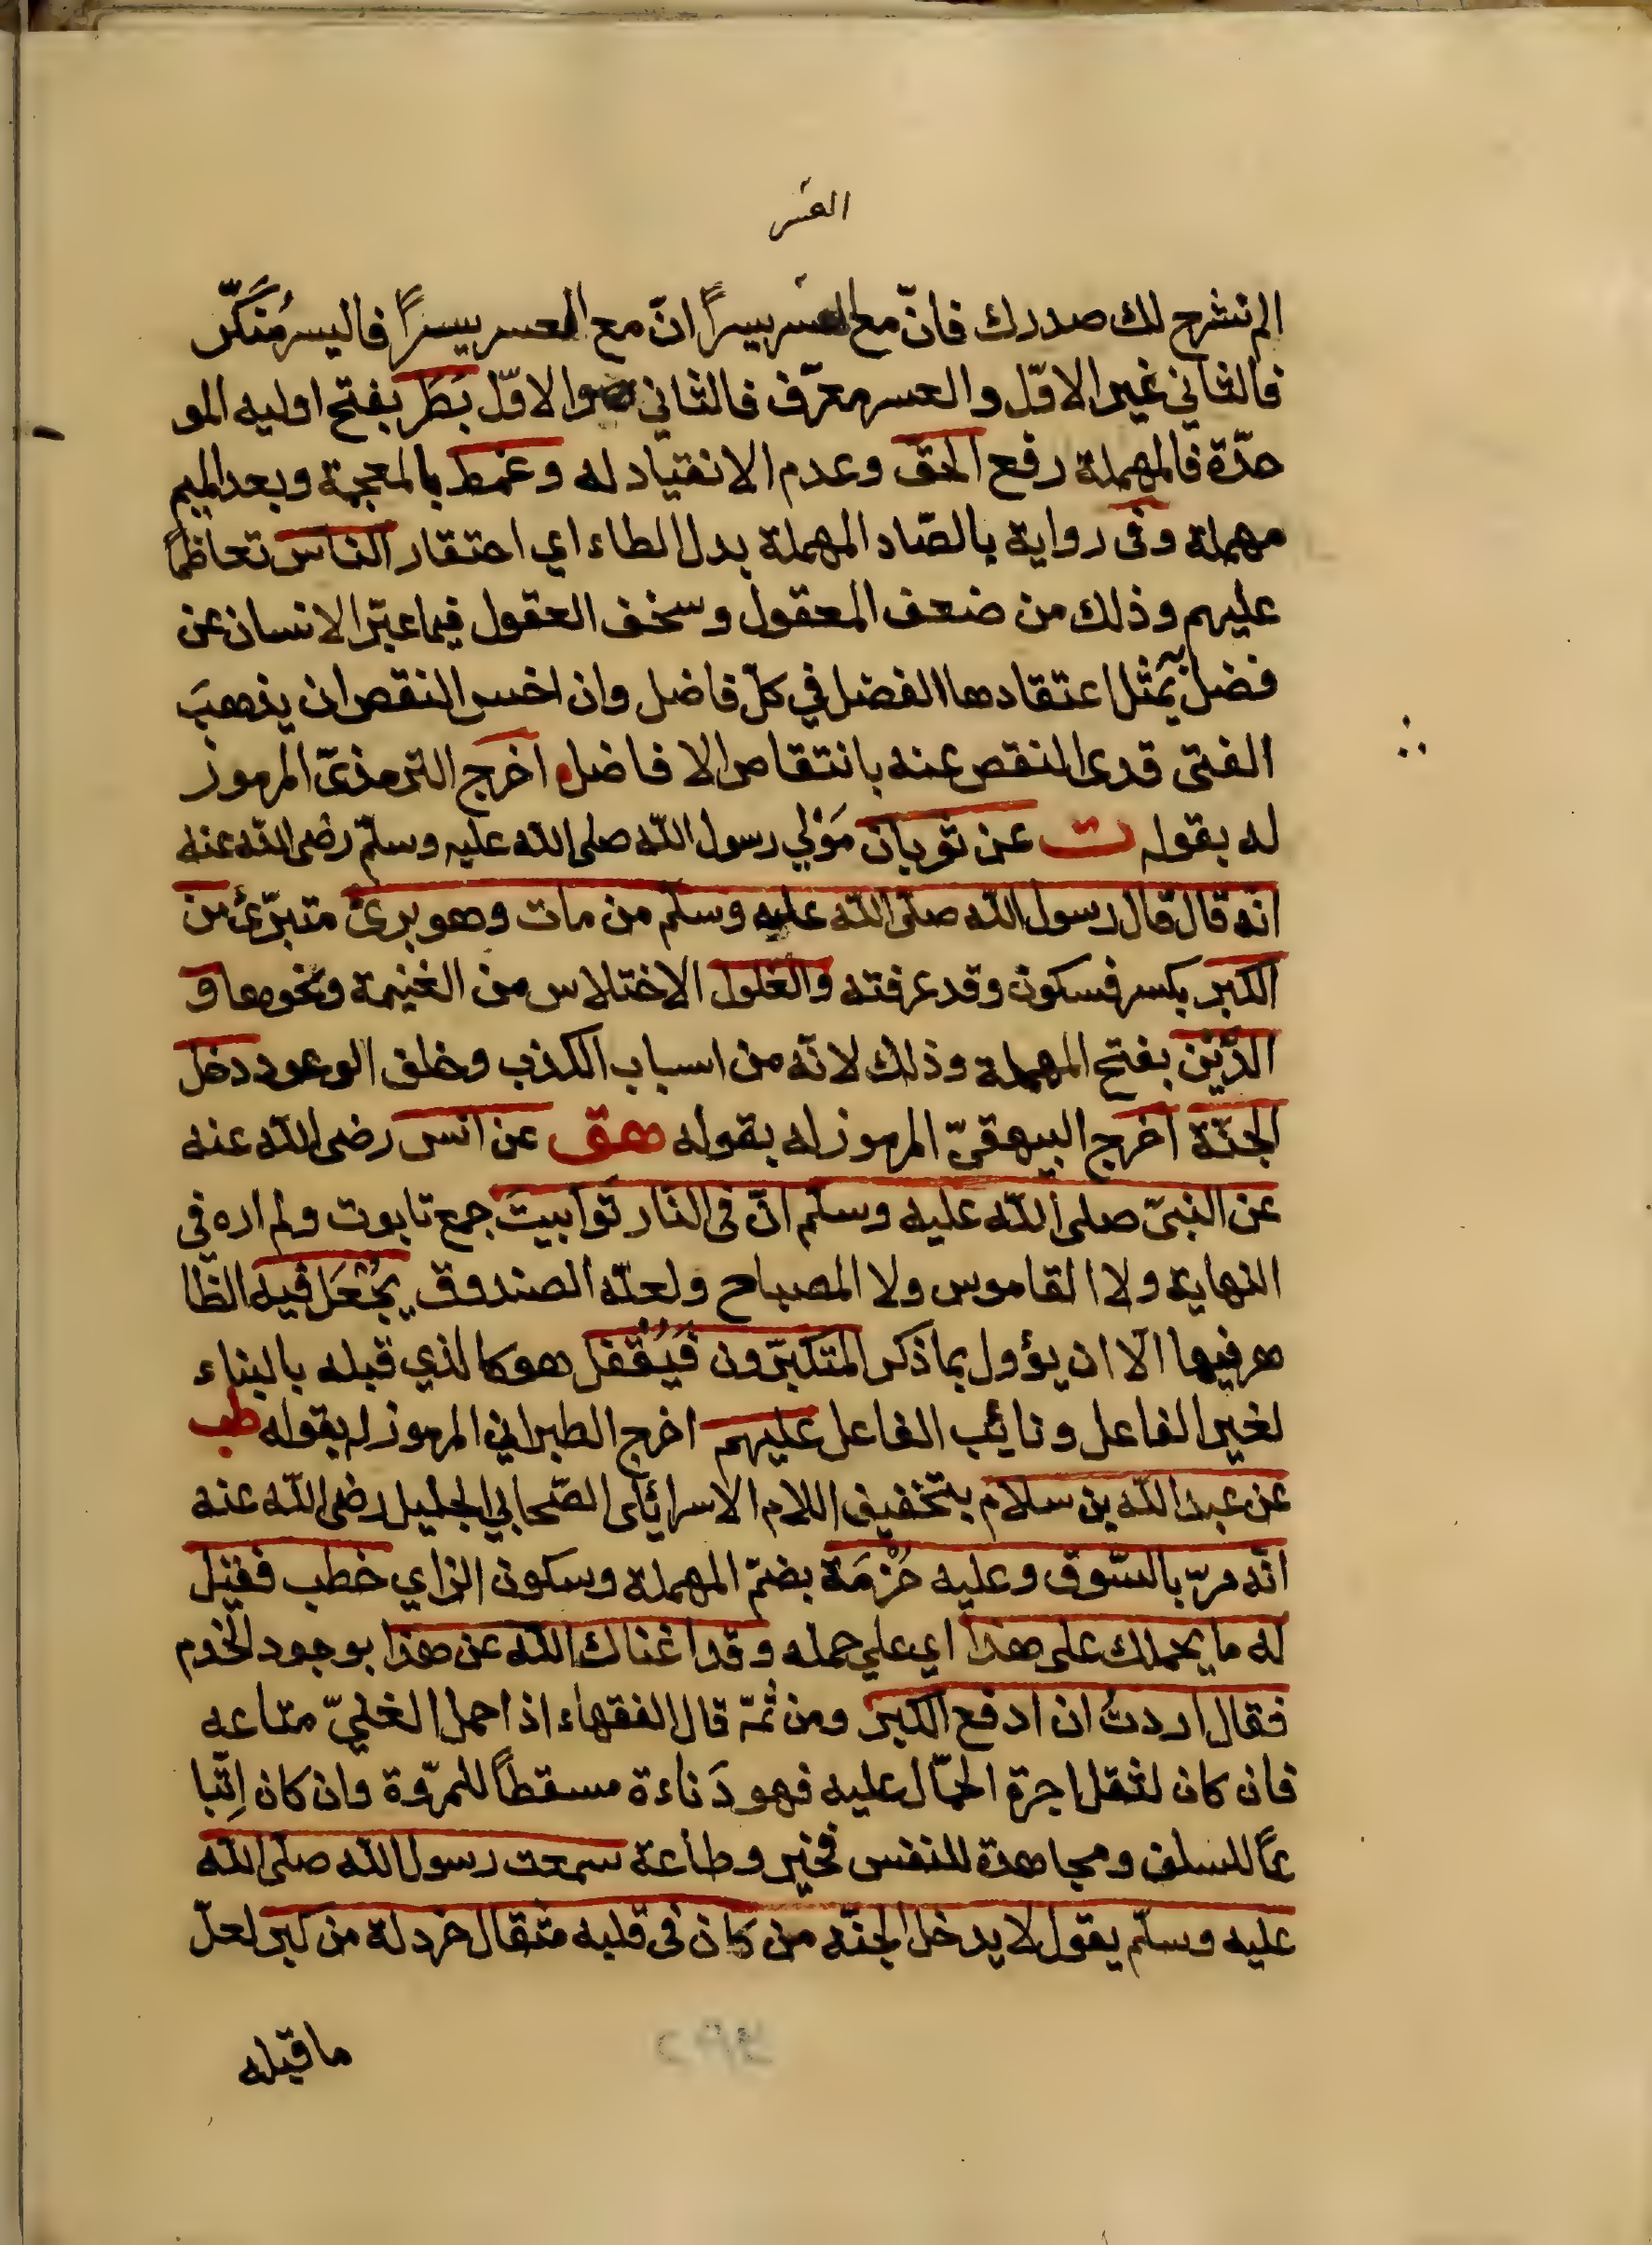 العسر
الم نشرح لك صدرك فانّ مع العسر يسراً انّ مع العسر يسراً فاليسر مُنَكَّر
فالثاني غير الاوّل والعسر معرّف فالثاني هو الاوّل بَطَر بفتح اوليه المو
حّدة فالمهملة رفع الحق وعدم الانقياد له وغمط بالمعجمة وبعد الميم
مهملة وفى رواية بالصّاد المهملة بدل الطاء اي احتقار الناس تعاظماً
عليهم وذلك من ضعف المعقول وسخف العقول فيما عبّر الانسان عن
فضل يمثل اعتقادها الفضل في كلّ فاضل وان اخس النقص ان يذهبَ
الفتى قدى النقص عنه بانتقاص الا فاضل اخرج الترمذىّ المرموز
له بقوله ت عن ثوبان مَوْلي رسول الله صلى الله عليه وسلّم رضى الله عنه
انّه قال قال رسول الله صلى الله عليه وسلّم من مات وهو برئ متبرّئ من
الكبر بكسر فسكون وقد عرفته والغلول الاختلاس من الغنيمة ونحوها و
الدَّيْن بفتح المهملة وذلك لانّه من اسباب الكذب وخلف الوعود دخل
الجنّة اخرج البيهقىّ المرموز له بقوله هق عن انس رضى الله عنه
عن النبىّ صلى الله عليه وسلّم انّ فى النار توابيتَ جمع تابوت ولم اره في
النهاية ولا القاموس ولا المصباح ولعلّه الصندوق يُجْعَل فيه الظا
هر فيها الّا ان يؤول بما ذكر المتكبّرون فَيُقْفَل هو كالذي قبله بالبناء
لغير الفاعل ونائب الفاعل عليهم اخرج الطبراني المرموز له بقوله طب
عن عبد الله بن سلام بتخفيف اللام الاسرائلى الصّحابي الجليل رضى الله عنه
انّه مرّ بالسّوق وعليه حُزْمَة بضمّ المهملة وسكون الزاي خطب فقيل
له ما يحملك على هذا اي علي حمله وقد اغناك الله عن هذا بوجود الخدم
فقال اردتُ ان ادفع الكبر ومن ثمّة قال الفقهاء اذا حمل الغليّ متاعه
فان كان لثقل اجرة الحمّال عليه فهو دَناءة مسقطاً للمرّوة وان كان اِتّبا
عاً للسلف ومجاهدة للنفس فخير وطاعة سمعت رسول الله صلى الله
عليه وسلّم يقول لا يدخل الجنّة من كان فى قلبه مثقال خردلة من كبر لعلّ
ما قبله